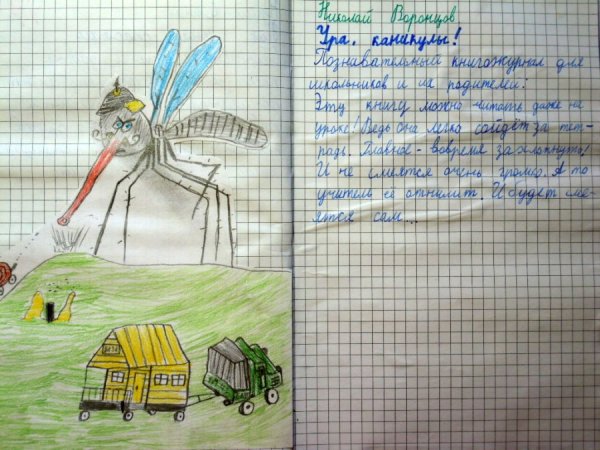 Николай Воронцов
Ура, каникулы!
Познавательный книгожурнал для
школьников и их родителей:
Эту книгу можно читать даже на
уроке! Ведь она легко сойдёт за тет-
радь. Главное - вовремя захлопнуть!
И не смеятся очень громко. А то
учитель её отнимет. И будет сме-
яться сам...